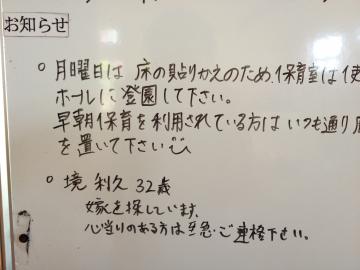 お知らせ
○ 月曜日は 床の貼りかえのため、保育室は使
ホールに登園して下さい。
早朝保育を利用されている方はいつも通り
を置いて下さい
○ 境 利久 32歳
嫁を探しています。
心当りのある方は至急ご連絡下さい。